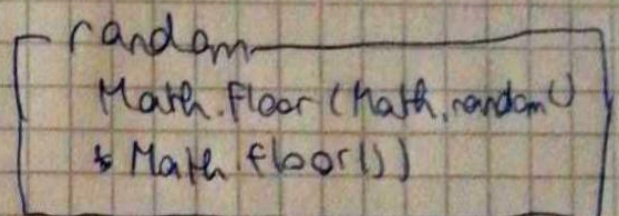 random
Math.floor(Math.random()
* Math.floor())